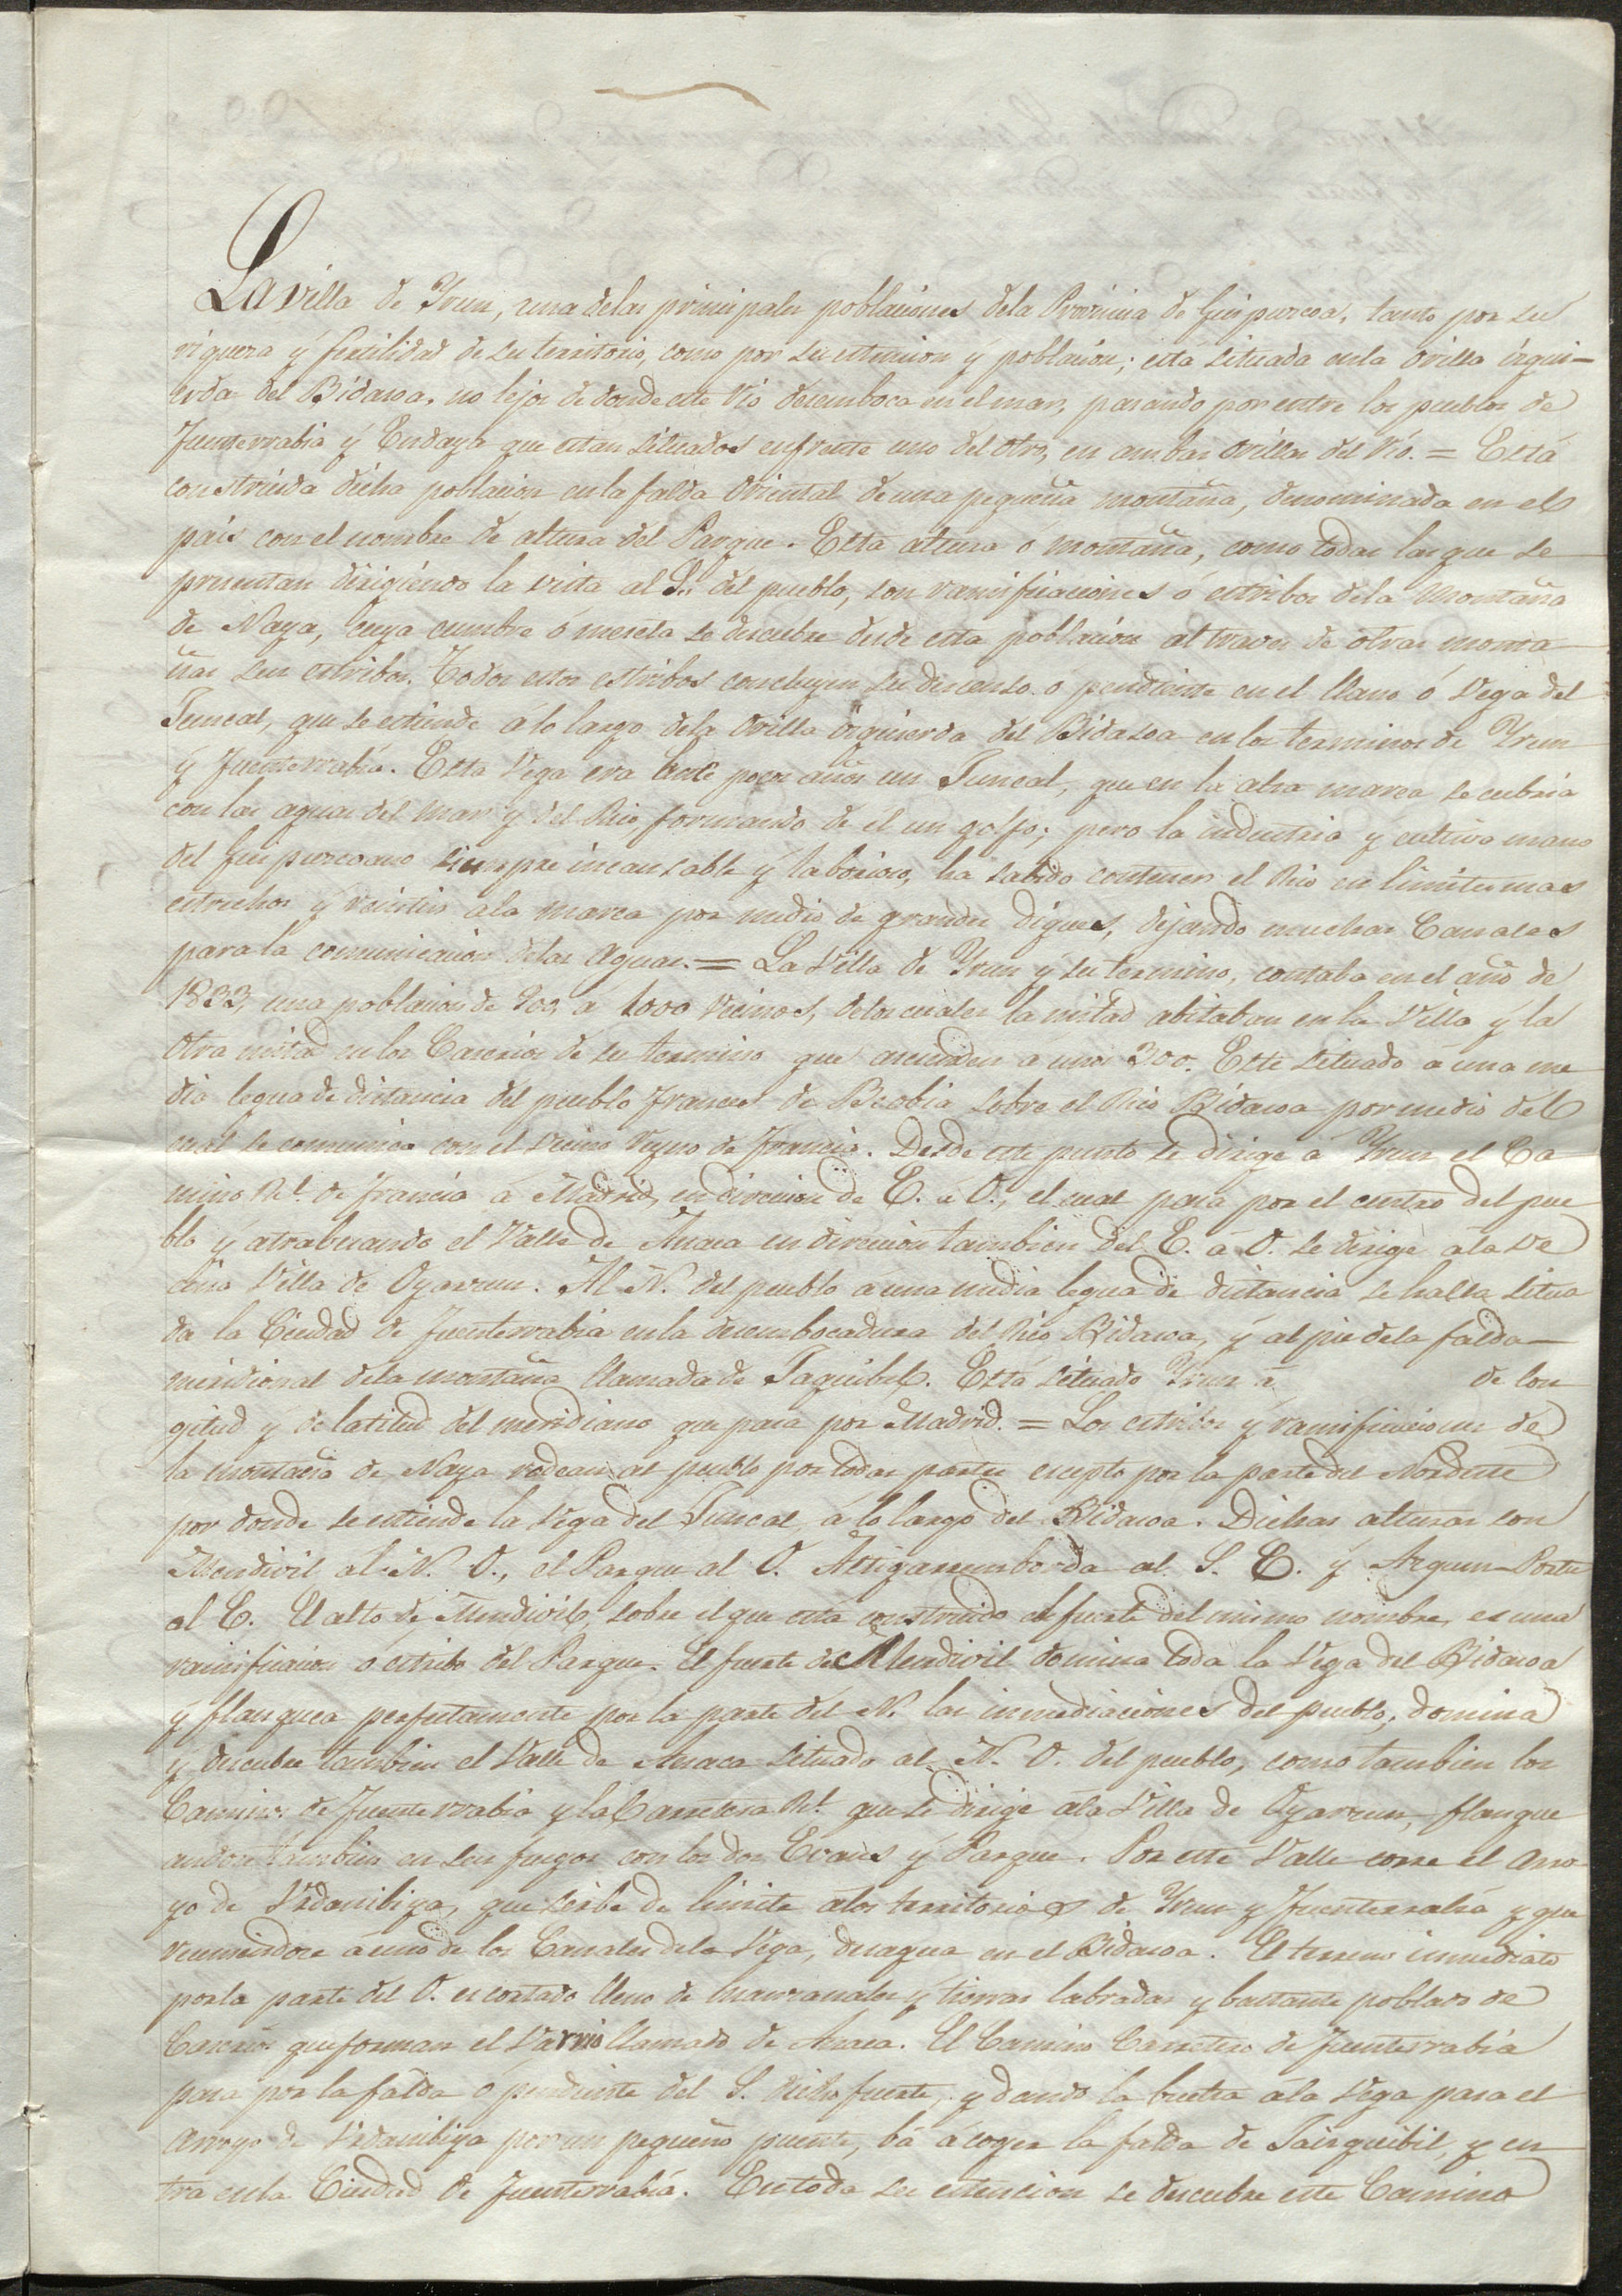 La villa de Yrun, una delas principales poblaciones dela Provincia de Guipuzcoa, tanto por su
riqueza y fertilidad de su territorio, como por su estension y poblacion; está situada enla orilla izqui-
erda del Bidasoa, no lejos de donde este rio desemboca en el mar, pasando por entre los pueblos de
Fuenterrabia y Endaya que estan situados enfrente uno del otro, en ambas orillas del rio. = Está
construida dicha poblacion en la falda Oriental de una pequeña montaña, denominada en el
país con el nombre de altura del Parque. Esta altura ó montaña, como todas las que se
presentan dirigiendo la vista al S. del pueblo, son ramificaciones ó estribos dela Montaña
de Naya, cuya cumbre ó meseta se descubre desde esta poblacion al traves de otras monta
ñas sus estribos. Todos estos estribos concluyen su descenso o pendiente en el llano ó Vega del
Juncal, que se estiende á lo largo dela Orilla izquierda del Bidasoa en los terminos de Yrun
y Fuenterrabia. Esta Vega era ante pocos años un Juncal, que en la alta marea se cubria
con las aguas del Mar y del Rio formando de él un golfo; pero la industria y cultivo mano
del Guipuzcoano siempre incansable y laborioso, ha sabido contener el Rio en limites mas
estrechos y resistir ala marea por medio de grandes diques, dejando muchos Canales
para la comunicacion delas Aguas. = La Villa de Yrun y su termino, contaba en el año de
1833, una poblacion de 900 á 1000 vecinos, delos cuales la mitad abitaban en la Villa y la
otra mitad en los Caserios de su termino que ascienden a unos 300. Esta situado á una me
dia legua de distancia del pueblo frances de Beobia sobre el Rio Bidasoa por medio del
cual se comunica con el vecino Reyno de Francia. Desde este punto se dirige á Yrun el Ca
mino Rl. de Francia á Madrid, en direccion de E. á O., el cual pasa por el centro del pue
blo y atrabesando el Valle de Anaca en direccion tambien del E. á O. se dirige ála ve
cina Villa de Oyarzun. Al N. del pueblo á una media legua de distancia se halla situa
da la Ciudad de Fuenterrabia en la desembocadura del Rio Bidasoa, y al pie dela falda
meridional dela montaña llamada de Jaquibel. Está situado Yrun á de lon
gitud y de latitud del meridiano que pasa por Madrid. = Los estribos y ramificaciones de
la montaña de Naya rodean al pueblo por todas partes escepto por la parte del Nordeste
por donde se estiende la Vega del Juncal á lo largo del Bidasoa. Dichas alturas son
Mendivil al N. O., el Parque al O. al S. E. y Portu
al E. El alto de Mendivil, sobre el que está construido el fuerte del mismo nombre, es una
ramificacion ó estribo del Parque. El fuerte de Mendivil domina toda la Vega del Bidasoa
y flanquea perfectamente por la parte del N. las inmediaciones del pueblo; domina
y descubre tambien el Valle de Anaca situado al N. O. del pueblo, como tambien los
Caminos de Fuenterrabia y la Carretera Rl. que se dirige ála Villa de Oyarzun, flanque
andose tambien en sus fuegos con los dos Evans y Parque. Por este Valle corre el arro
yo de Vrdanibiya, que sirbe de limite álos territorios de Yrun y Fuenterrabia y que
reuniendose á uno de los Canales dela Vega, desagua en el Bidasoa. El terreno inmediato
por la parte del O. es cortado lleno de manzanales y tierras labradas y bastante poblado de
Caserios que forman el varrio llamado de Anaca. El Camino Carretero de Fuenterrabia
pasa por la falda ó pendiente del S. dicho fuerte, y dando la buelta ála Vega pasa el
Arroyo de Vrdanibiya por un pequeño puente, bá á coger la falda de Jaizquibil, y en
tra en la Ciudad de Fuenterrabia. En toda su estension se descubre este Camino